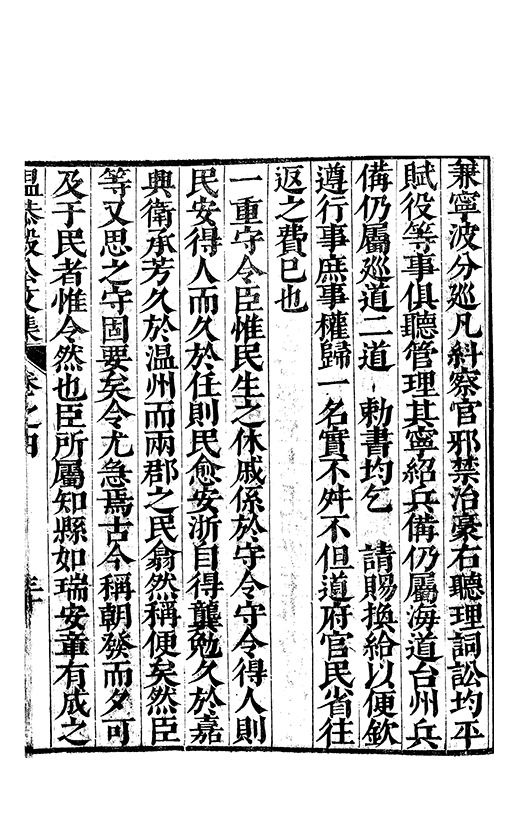 兼寧波分廵凡糾察官邪禁治豪右聽理詞訟均平
賦役等事俱聽管理其寧紹兵備仍屬海道台州兵
備仍屬廵道二道 勅書均乞 請賜換給以便欽
遵行事庶事權歸一名實不舛不但道府官民省往
返之費已也
一重守令臣惟民生之休戚係於守令守令得人則
民安得人而久於任則民愈安浙自得龔勉久於嘉
興衛承芳久於温州而兩郡之民翕然稱便矣然臣
等又思之守固要矣令尤急焉古今稱朝發而夕可
及于民者惟令然也臣所屬知縣如瑞安章有成之
温恭毅公文集 卷之四